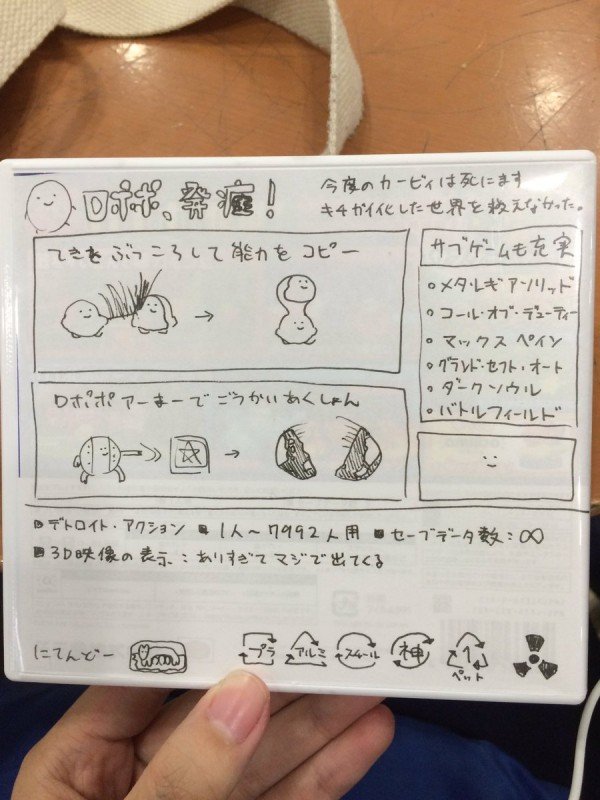 ロボボ、発症!
今度のカービィは死にます
キチガイ化した世界を救えなかった。
てきをぶっころして能力をコピー
→
サブゲームも充実
メタルギアソリッド
コール・オブ・デューティー
マックスペイン
グランド・セフト・オート
ダークソウル
バトルフィールド
ロボボアーまーでごうかいあくしょん
→
デトロイト・アクション 1人~7992人用 セーブデータ数:∞
3D映像の表示:ありすぎてマジで出てくる
にてんどー
プラ アルミ スチール 神 1 ペット